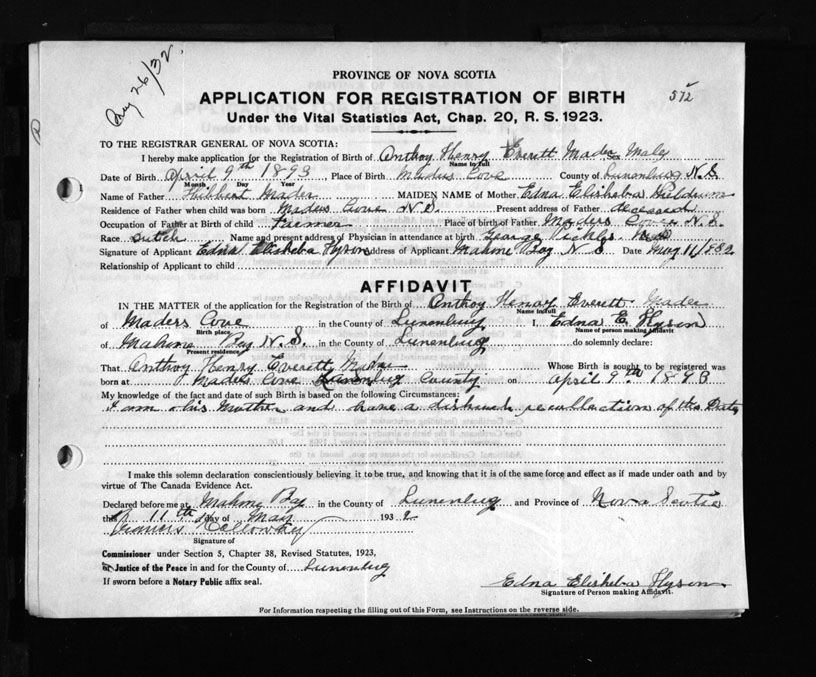 Aug 26/32
572
PROVINCE OF NOVA SCOTIA
APPLICATION FOR REGISTRATION OF BIRTH
Under the Vital Statistics Act, Chap. 20, R. S. 1923.
TO THE REGISTRAR GENERAL OF NOVA SCOTIA:
I hereby make application for the Registration of Birth of Anthoy Henry Everett Mader Male
Name in full
Date of Birth April 9th 1893 Place of Birth Maders Cove County of Lunenburg N.S
Month Day Year
Name of Father Hibbert Mader MAIDEN NAME of Mother Edna Elisheba
Residence of Father when child was born Maders Cove N.S. Present address of Father deceased
Occupation of Father at Birth of child Farmer Place of birth of Father Maders Cove N.S.
Race Dutch Name and present address of Physician in attendance at birth George Pickles
Signature of Applicant Edna Elisheba Hyson Address of Applicant Mahone Bay N S Date May 11/32
Relationship of Applicant to child
AFFIDAVIT
IN THE MATTER of the application for the Registration of the Birth of Anthoy Henry Everett Mader
Name in full
of Maders Cove in the County of Lunenburg I, Edna E. Hyson
Birth place Name of person making Affidavit
of Mahone Bay N.S. in the County of Lunenburg do solemnly declare:
Present residence
That Anthoy Henry Everett Mader Whose Birth is sought to be registered was
born at Maders Cove Lunenburg County on April 9th 1893
My knowledge of the fact and date of such Birth is based on the following Circumstances:
I am his Mother and have a distinct recollection of the Date
I make this solemn declaration conscientiously believing it to be true, and knowing that it is of the same force and effect as if made under oath and by
virtue of The Canada Evidence Act.
Declared before me at Mahone Bay in the County of Lunenburg and Province of Nova Scotia
this 11th day of May 1932
Francis
Signature of
Commissioner under Section 5, Chapter 38, Revised Statutes, 1923,
or Justice of the Peace in and for the County of Lunenburg
If sworn before a Notary Public affix seal.
Edna Elisheba Hyson
Signature of Person making Affidavit.
For Information respecting the filling out of this Form, see Instructions on the reverse side.